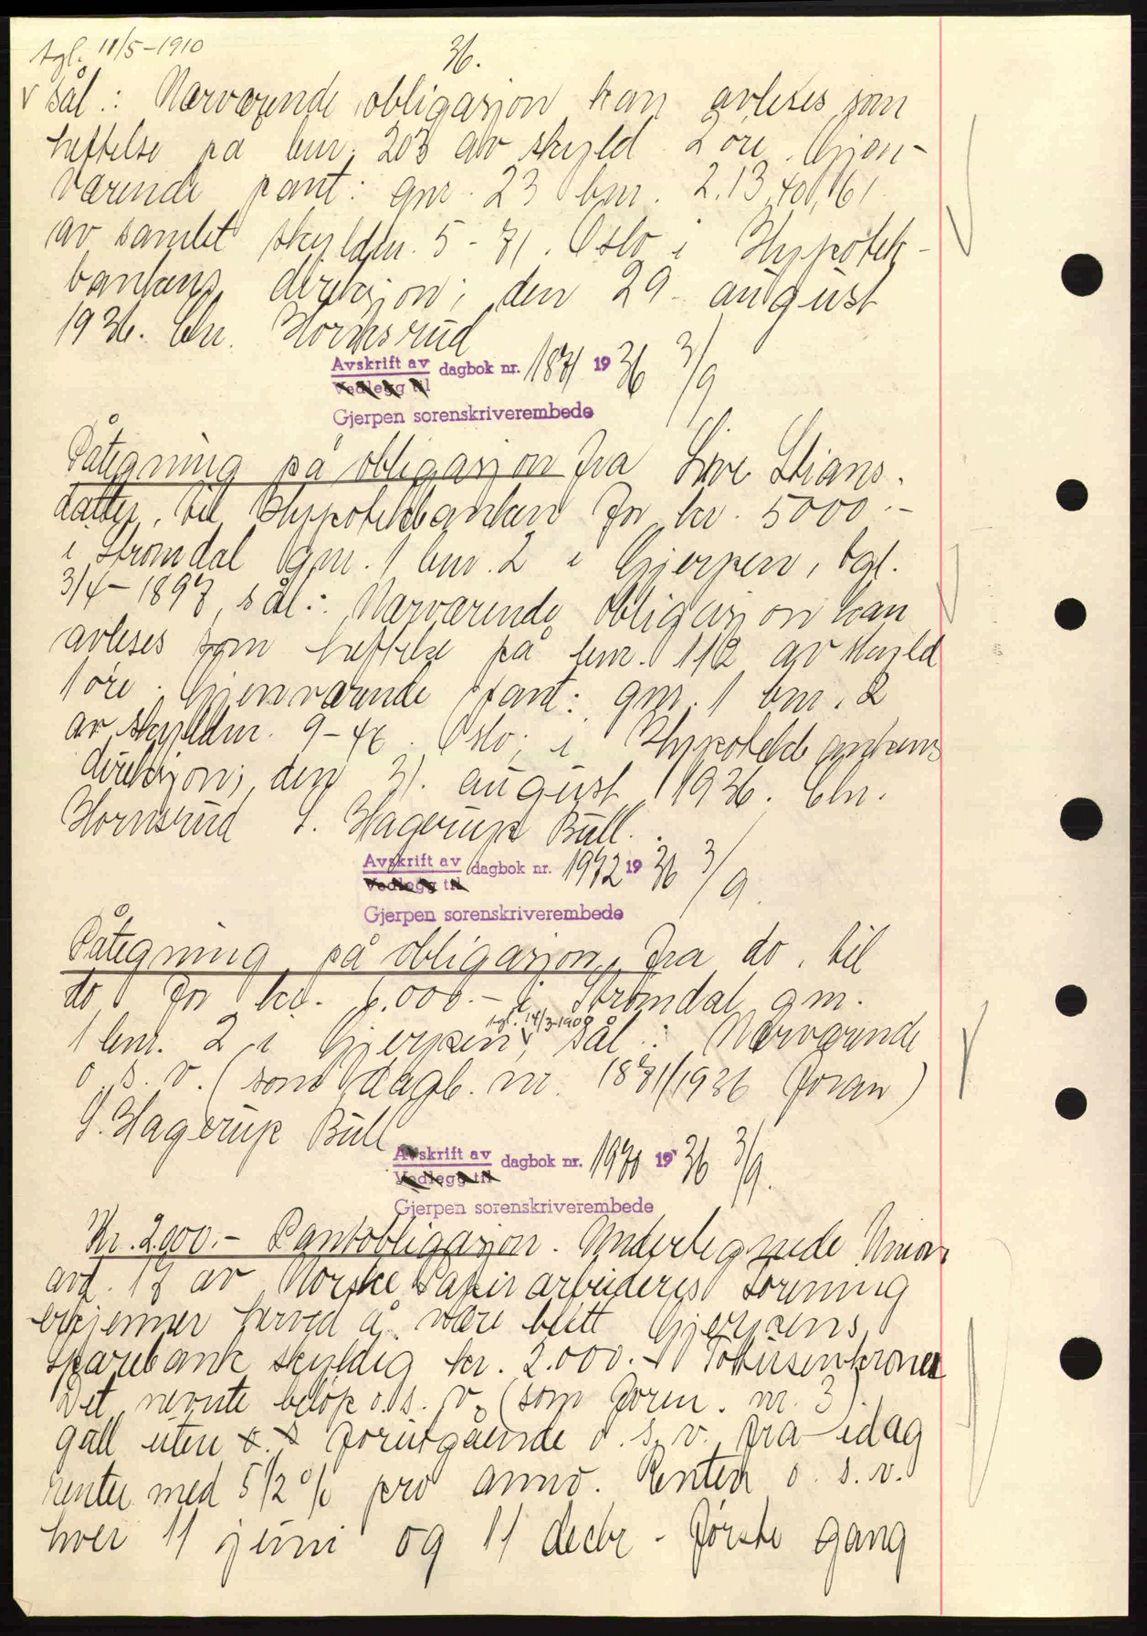 tgl. 11/5-1910
36.
v sål.: Nærværende obligasjon kan avleses som
heftelse på bnr. 203 av skyld 2 öre. Gjen-
værende pant: gnr. 23 bnr. 2. 13, 40, 61
av samlet skyldm. 5-71. Oslo i Hypotek-
bankens direksjon; den 29. august
1936. Chr. Hornsrud
Avskrift av dagbok nr. 1871 1936 3/9
Vedlegg til
Gjerpen sorenskriverembede
Påtegning på obligasjon fra Live Stians-
datter, til Hypotekbanken for kr. 5000.-
i Strömdal gnr. 1 bnr. 2 i Gjerpen, tgl.
3/4-1897, sål.: Nærværende obligasjon kan
avleses som heftelse på bnr. 112 av skyld
1 öre. Gjenværende pant: gnr. 1 bnr. 2
av skyldm. 9-46. Oslo; i Hypotekbankens
direksjon; den 31. august 1936. Chr.
Hornsrud S. Hagerup Bull.
Avskrift av dagbok nr. 1972 1936 3/9
Vedlegg til
Gjerpen sorenskriverembede
Påtegning på obligasjon fra do. til
do for kr. 6.000.- i Strömdal gnr.
1 bnr. 2 i Gjerpen, v sål.: Nærværende
tgl. 14/3-1909
o. s. v. (som dagb. nr. 1871/1936 foran)
S. Hagerup Bull
Avskrift av dagbok nr. 1970 1936 3/9.
Vedlegg til
Gjerpen sorenskriverembede
Kr. 2.000.- Pantobligasjon. Undertegnede Union
avd. 18 av Norske Papirarbeideres forening
erkjenner herved å være blitt Gjerpens
Sparebank skyldig kr. 2.000.- Totusenkroner
Det nevnte belöp o. s. v. (som foren. nr. 3)
gall uten forutgående o. s. v. fra idag
renter med 5 1/2 % pro anno. Renten o. s. v.
hver 11 juni og 11 decbr - förste gang